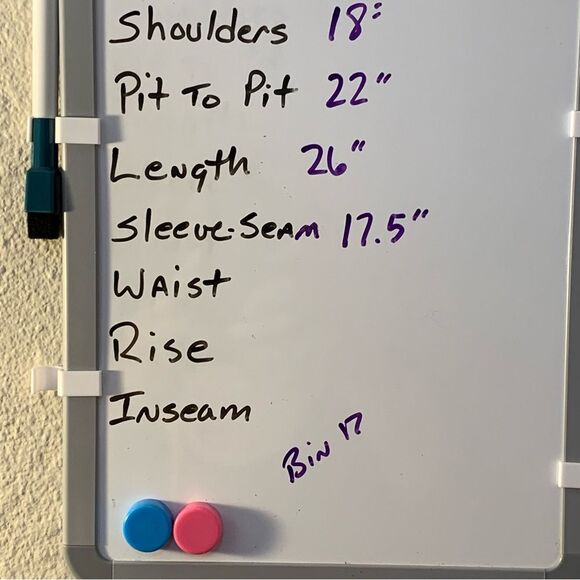 Shoulders 18"
Pit To Pit 22"
Length 26"
Sleeve-Seam 17.5"
Waist
Rise
Inseam
Bin 17